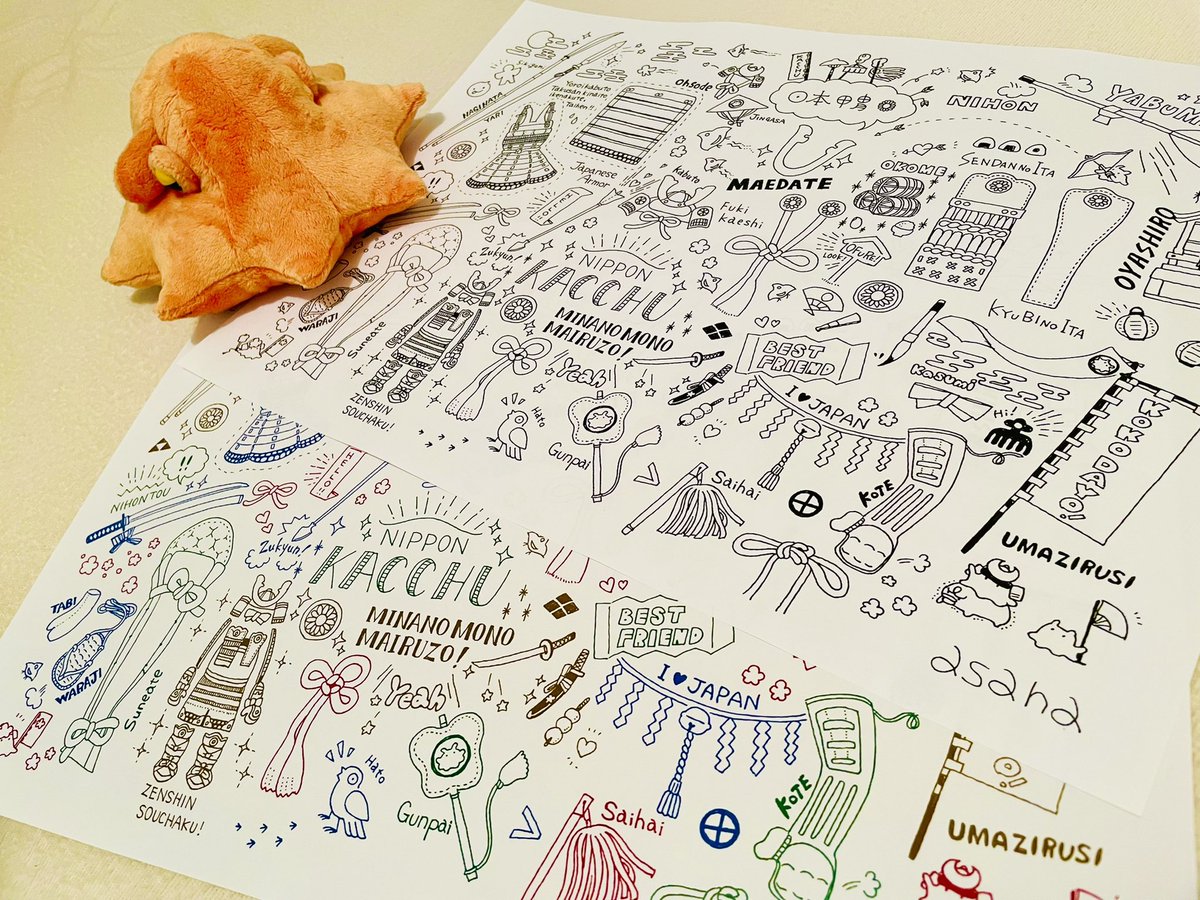 NAGINATA
YARI
Yoroi kabuto
Takusan kinaite
ikenakute,
Taihen!!
Ohsode
JINGASA
日本甲冑
NIHON
YABUM
Japanese
Armor
Kabuto
MAEDATE
OKOME
SENDAN NO ITA
Fuki
kaeshi
OFURE
LOOK!
OYASHIRO
KYUBI NO ITA
Zukyun!
NIPPON
KACCHU
MINANO MONO
MAIRUZO!
WARAJI
Suneate
ZENSHIN
SOUCHAKU!
Yeah
BEST
FRIEND
Kasumi
Hi!
I ♥ JAPAN
Hato
Gunpai
Saihai
KOTE
KOKODAYO!
UMAZIRUSI
asana
!!
NIHONTOU
Zukyun!
NIPPON
KACCHU
MINANO MONO
MAIRUZO!
TABI
WARAJI
Suneate
ZENSHIN
SOUCHAKU!
Yeah
BEST
FRIEND
I ♥ JAPAN
Hato
Gunpai
Saihai
KOTE
O!
UMAZIRUSI